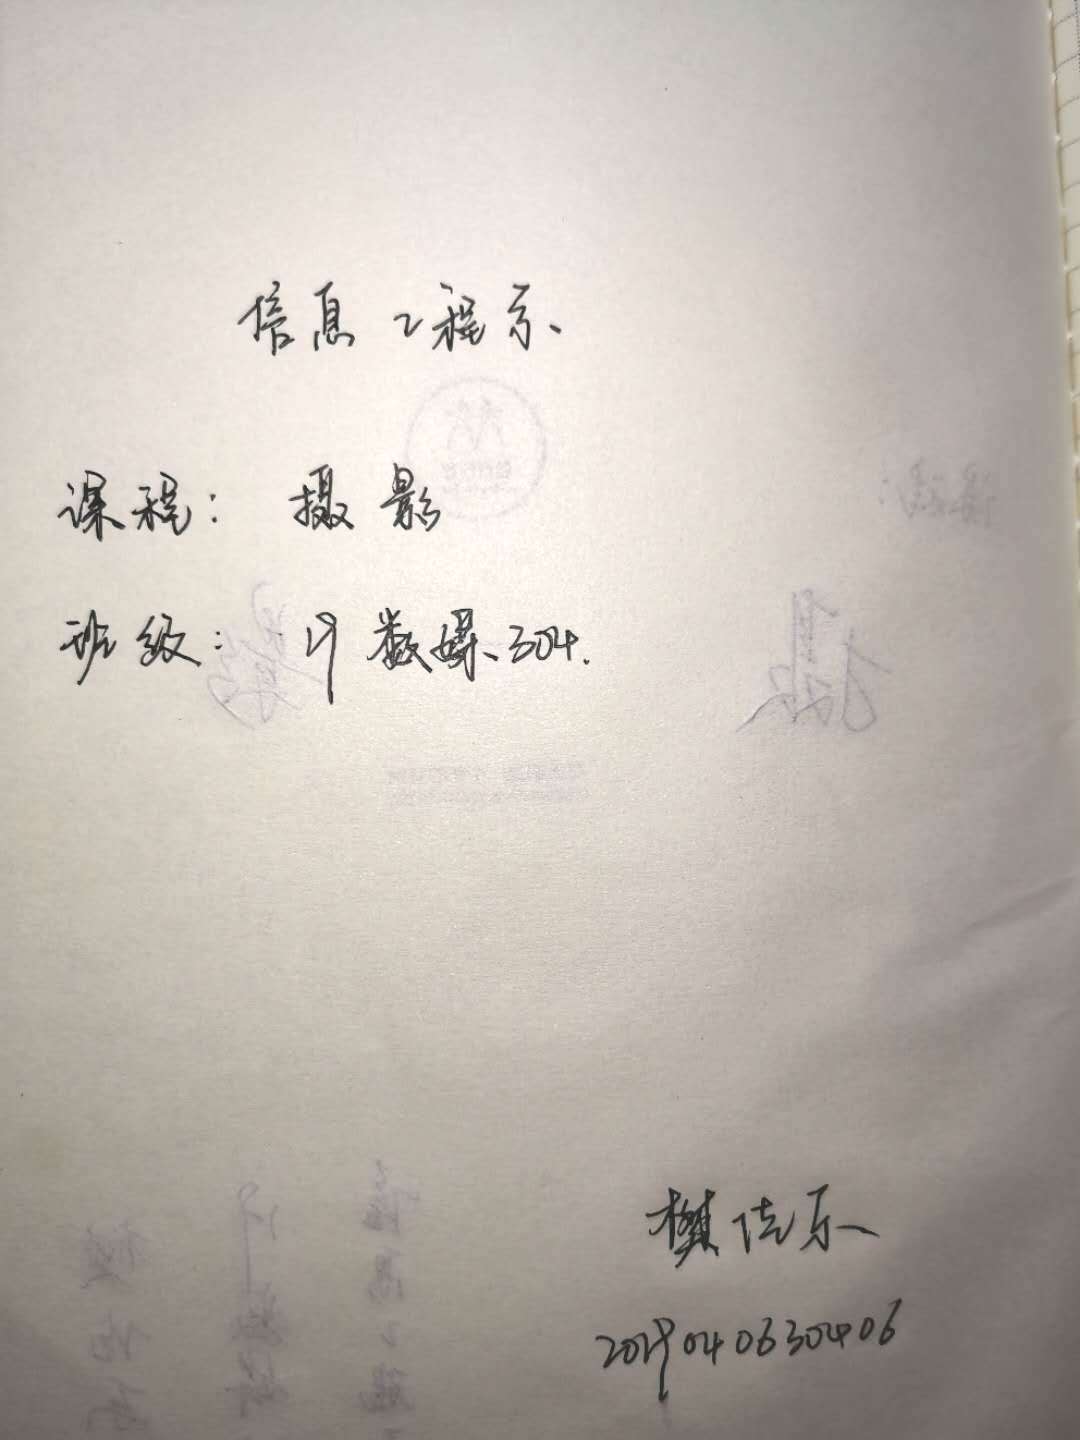 信息工程系
课程： 摄影
班级： 19数媒304.
樊佳乐
2019040630406